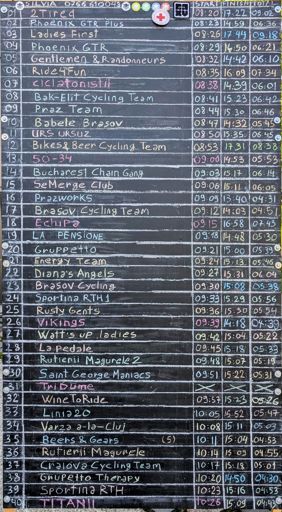 SILVIA 0766 START FINISH TOTAL
01 2Tired 08:20 17:22 09:02
02 Phoenix GTR Plus 08:23 14:59 06:36
03 Ladies First 08:26 17:44 09:18
04 Phoenix GTR 08:29 14:50 06:21
05 Gentlemen & Randonneurs 08:32 14:42 06:10
06 Ride4Fun 08:35 16:09 07:34
07 ciclatonistii 08:38 14:39 06:01
08 Bak-Elit Cycling Team 08:41 15:23 06:42
09 Praz Team 08:44 15:30 06:46
10 Babele Brasov 08:47 14:32 05:45
11 URS URSUZ 08:50 15:35 06:45
12 Bikes&Beer Cycling Team 08:53 17:31 08:38
13 50-34 09:00 14:53 05:53
14 Bucharest Chain Gang 09:03 15:17 06:14
15 SeMerge Club 09:06 15:11 06:05
16 PRAZWORKS 09:09 15:40 04:31
17 Brasov Cycling Team 09:12 14:03 04:51
18 Echipa 09:15 16:58 07:43
19 LA PENSIONE 09:18 14:48 05:30
20 Gruppetto 09:21 15:00 05:39
21 Energy Team 09:24 15:13
22 Diana's Angels 09:27 15:31 06:04
23 Brasov Cycling 09:30 15:08 05:38
24 Sportina RTH1 09:33 15:29 05:56
25 Rusty Gents 09:36 15:30 05:54
26 Vikings 09:39 14:18 04:39
27 Watt's up ladies 09:42 15:04 05:22
28 La pedale 09:45 15:18 05:33
29 Rutierii Magurele 2 09:48 15:07 05:19
30 Saint George Maniacs 09:51 15:22 05:31
31 TriDume
32 WineToRide 09:57 15:23 05:26
33 Linia20 10:05 15:52 05:47
34 Varza a-la-Cluj 10:08 15:11 05:03
35 Beers & Gears (5) 10:11 15:04 04:53
36 Rutierii Magurele 10:14 15:09 04:55
37 Craiova Cycling Team 10:17 15:18 05:01
38 Grupetto Therapy 10:20 14:50 04:30
39 Sportina RTH 10:23 15:16 04:53
40 TITANII 10:26 15:09 04:43